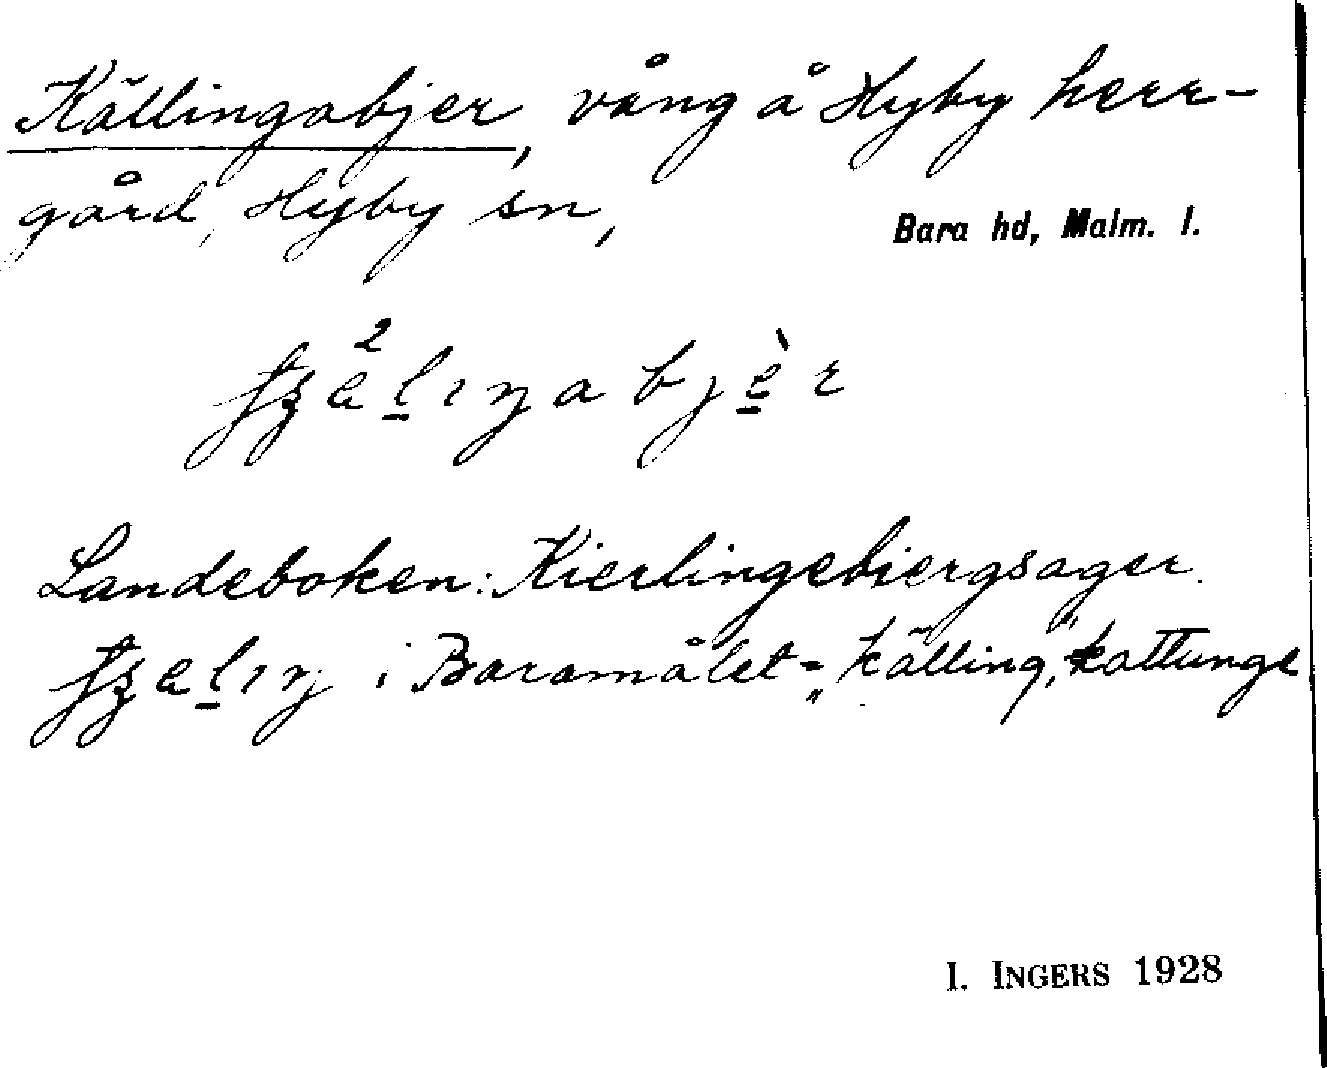 Källingabjer, vång å Hyby herr-
gård, Hyby sn,
Bara hd, Malm. l.
Landeboken: Kierlingebiergsager.
i Baramålet = „källing," kattunge
I. INGERS 1928